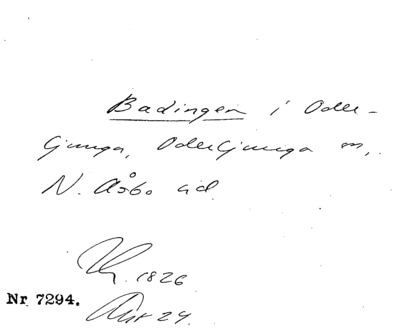 Badingen i Oder-
ljunga, Oderljunga sn,
N. Åsbo hd.
1826
Nr 7294.
Akt 24.